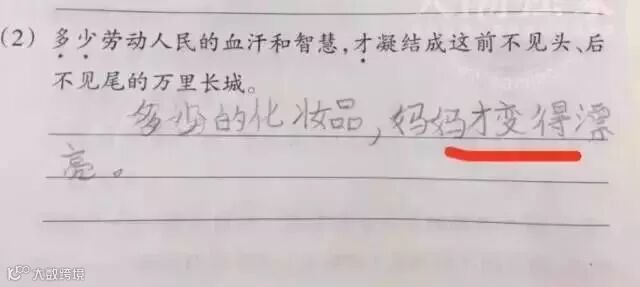 (2) 多少劳动人民的血汗和智慧,才凝结成这前不见头、后
不见尾的万里长城。
多少的化妆品,妈妈才变得漂
亮。
大数跨境